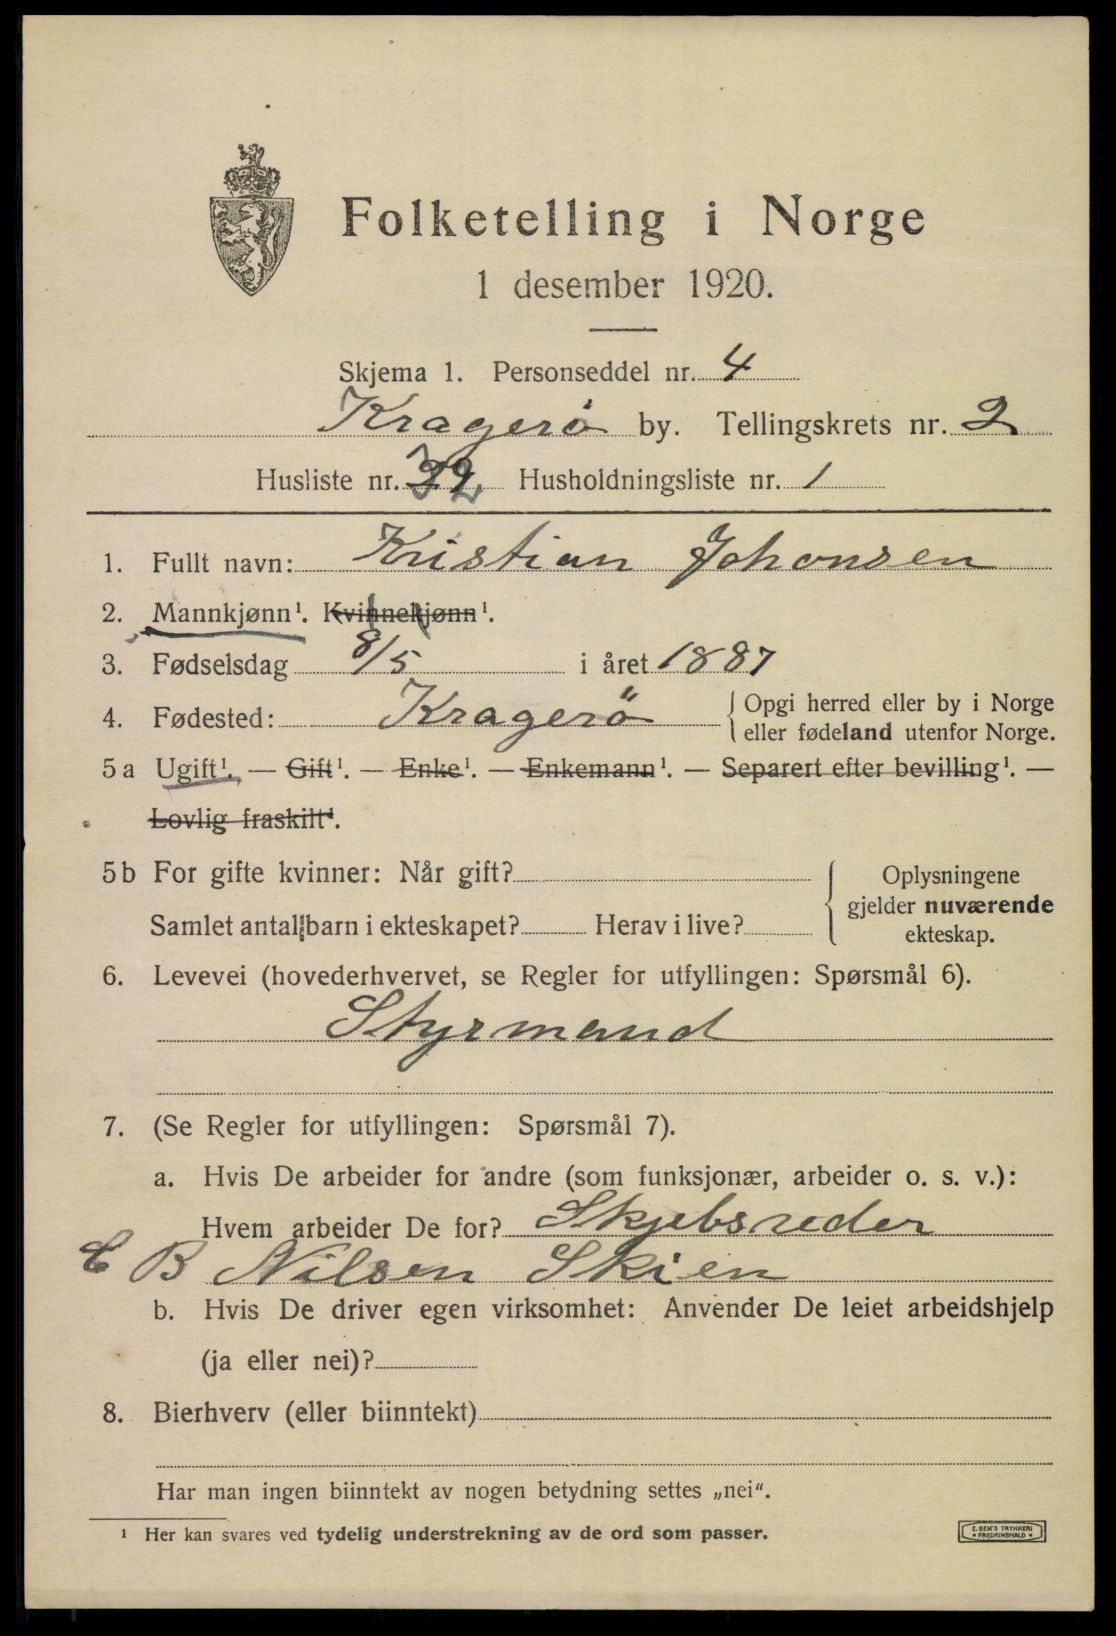 Folketelling i Norge
1 desember 1920.
Skjema 1. Personseddel nr. 4
Kragerö by. Tellingskrets nr. 2
Husliste nr. 32 Husholdningsliste nr. 1
1. Fullt navn: Kristian Johansen
2. Mannkjønn¹. Kvinnekjønn¹.
3. Fødselsdag 8/5 i året 1887
4. Fødested: Kragerö { Opgi herred eller by i Norge
eller fødeland utenfor Norge.
5 a Ugift¹. — Gift¹. — Enke¹. — Enkemann¹. — Separert efter bevilling¹. —
Lovlig fraskilt¹.
5 b For gifte kvinner: Når gift?
Samlet antal barn i ekteskapet? Herav i live?
Oplysningene
gjelder nuværende
ekteskap.
6. Levevei (hovederhvervet, se Regler for utfyllingen: Spørsmål 6).
Styrmand
7. (Se Regler for utfyllingen: Spørsmål 7).
a. Hvis De arbeider for andre (som funksjonær, arbeider o. s. v.):
Hvem arbeider De for? Skjebsreder
C B Nilsen Skien
b. Hvis De driver egen virksomhet: Anvender De leiet arbeidshjelp
(ja eller nei)?
8. Bierhverv (eller biinntekt)
Har man ingen biinntekt av nogen betydning settes „nei“.
¹ Her kan svares ved tydelig understrekning av de ord som passer.
E. SEM'S TRYKKERI
FREDRIKSHALD